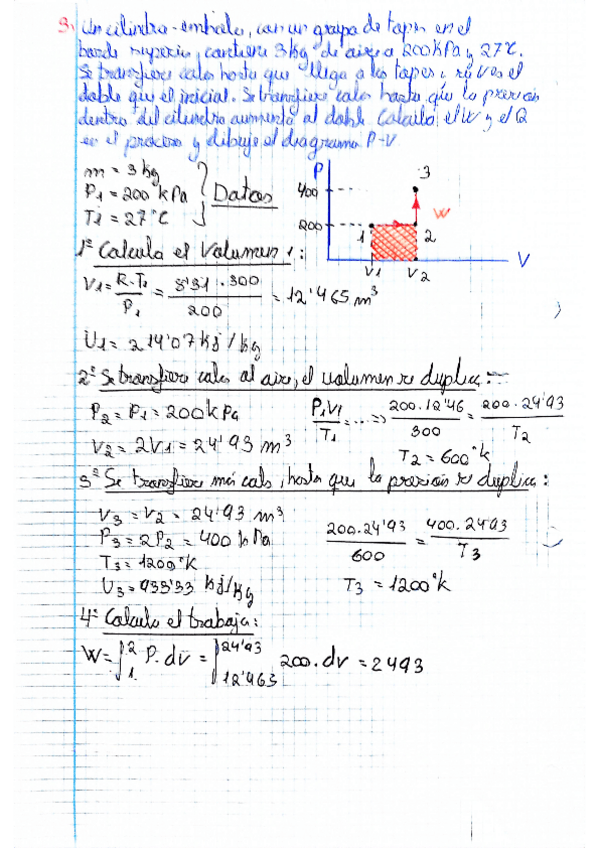 3. Un cilindro-embolo, con un grupo de topes en el
borde superior, contiene 3kg de aire a 200KPa y 27°C.
Se transfiere calor hasta que llega a los topes, V es el
doble que el inicial. Se transfiere calor hasta que la presión
dentro del cilindro aumenta al doble Calcula el W y el Q
en el proceso y dibuje el diagrama P-V.
m = 3 kg
P1 = 200 kPa
T1 = 27°C
Datos
P
400
200
1
2
3
W
V1
V2
V
1º Calcula el Volumen 1:
V1 = R.T1 / P1 = 8'31 . 300 / 200 = 12'465 m³
U1 = 214'07 kJ/kg
2º Se transfiere calor al aire, el volumen se duplica:
P2 = P1 = 200kPa
P1V1 / T1 = ... => 200.12'46 / 300 = 200.24'93 / T2
V2 = 2V1 = 24'93 m³
T2 = 600°k
3º Se transfiere más calor, hasta que la presión se duplica:
V3 = V2 = 24'93 m³
P3 = 2P2 = 400 kPa
200.24'93 / 600 = 400.24'93 / T3
T3 = 1200°K
U3 = 933'33 kJ/kg
T3 = 1200°k
4º Calcula el trabajo:
W = ∫₁² P. dv = ∫ 24'93 12'463 200. dv = 2493